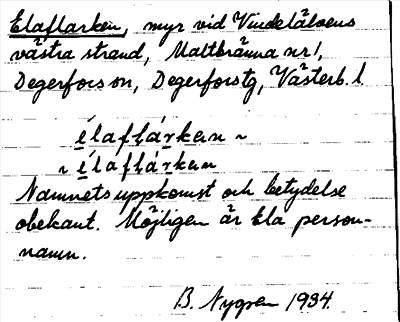 Elaflarken, myr vid Vindelälvens
västra strand, Maltbränna nr 1,
Degerfors sn, Degerforstg, Västerb. l
élafḷárkan ~
~ élafḷárkan
Namnets uppkomst och betydelse
obekant. Möjligen är Ela person-
namn.
B. Nygren 1934.